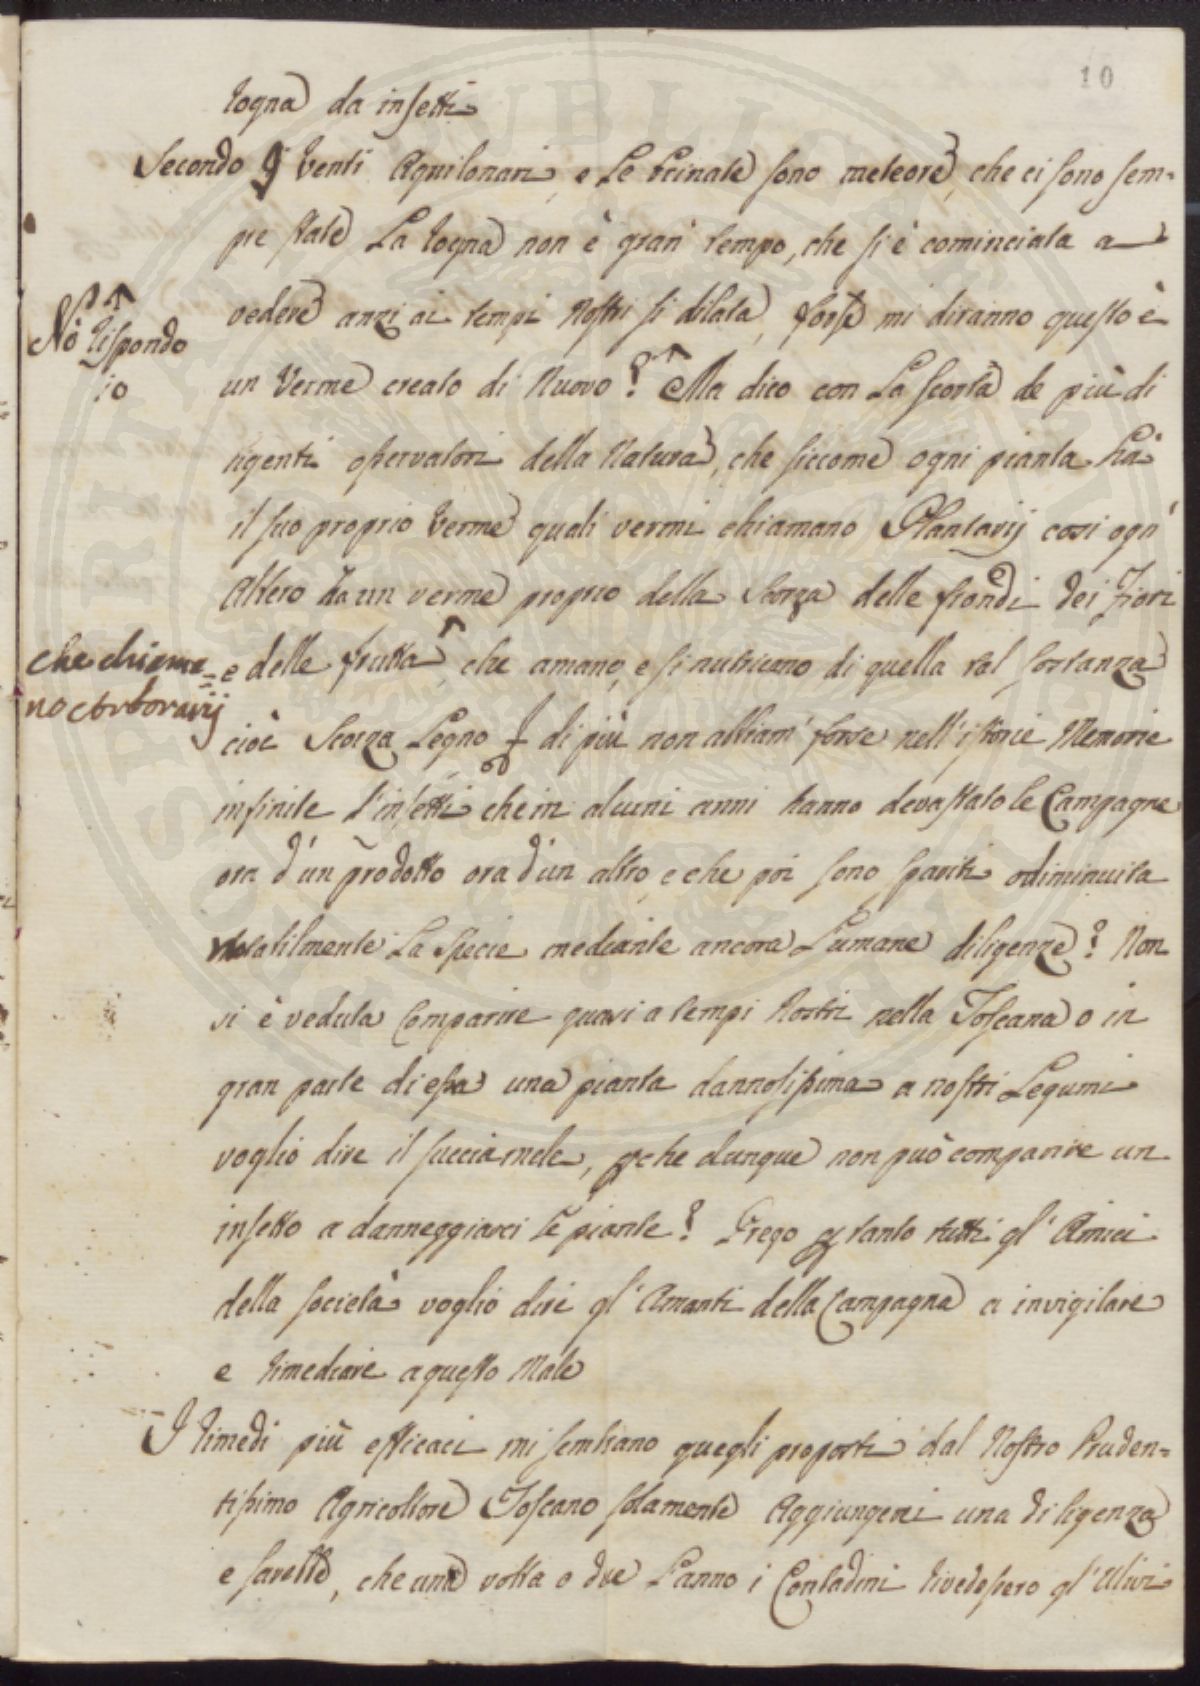 10
rogna da insetti
Secondo i venti Aquilonari, e Le brinate sono meteore, che ci sono sem=
pre state La rogna non è gran tempo, che si è cominciata a
vedere anzi ai tempi Nostri si dilata, forse mi diranno questo è
Nò rispondo
io
un Verme creato di Nuovo? Ma dico con La scorta de più di
ligenti osservatori della Natura, che siccome ogni pianta hà
il suo proprio verme quali vermi chiamano Plantarij così ogn'
Albero ha un verme proprio della scorza delle frondi dei Fiori
che chiama=
no Arborarij
e delle frutta, che amano, e si nutricano di quella tal sostanza
cioè Scorza Legno di più non abbiam' forse nell'istorie Memorie
infinite d'insetti che in alcuni anni hanno devastato le Campagne
ora d'un prodotto ora d'un altro, e che poi sono spariti o diminuita
notabilmente La Specie mediante ancora L'umane diligenze? Non
si è veduta Comparire quasi a tempi Nostri nella Toscana o in
gran parte di essa una pianta dannosissima a nostri Legumi
voglio dire il succiamele, perche dunque non può comparire un
insetto a danneggiarci le piante? Prego per tanto tutti gl'Amici
della società voglio dire gl'Amanti della Campagna a invigilare
e rimediare a questo Male
I rimedi più efficaci mi sembrano quegli proposti dal Nostro Pruden=
tissimo Agricoltore Toscano solamente Aggiungerei una diligenza
e sarebbe, che una volta o due L'anno i Contadini rivedessero gl'Ulivi